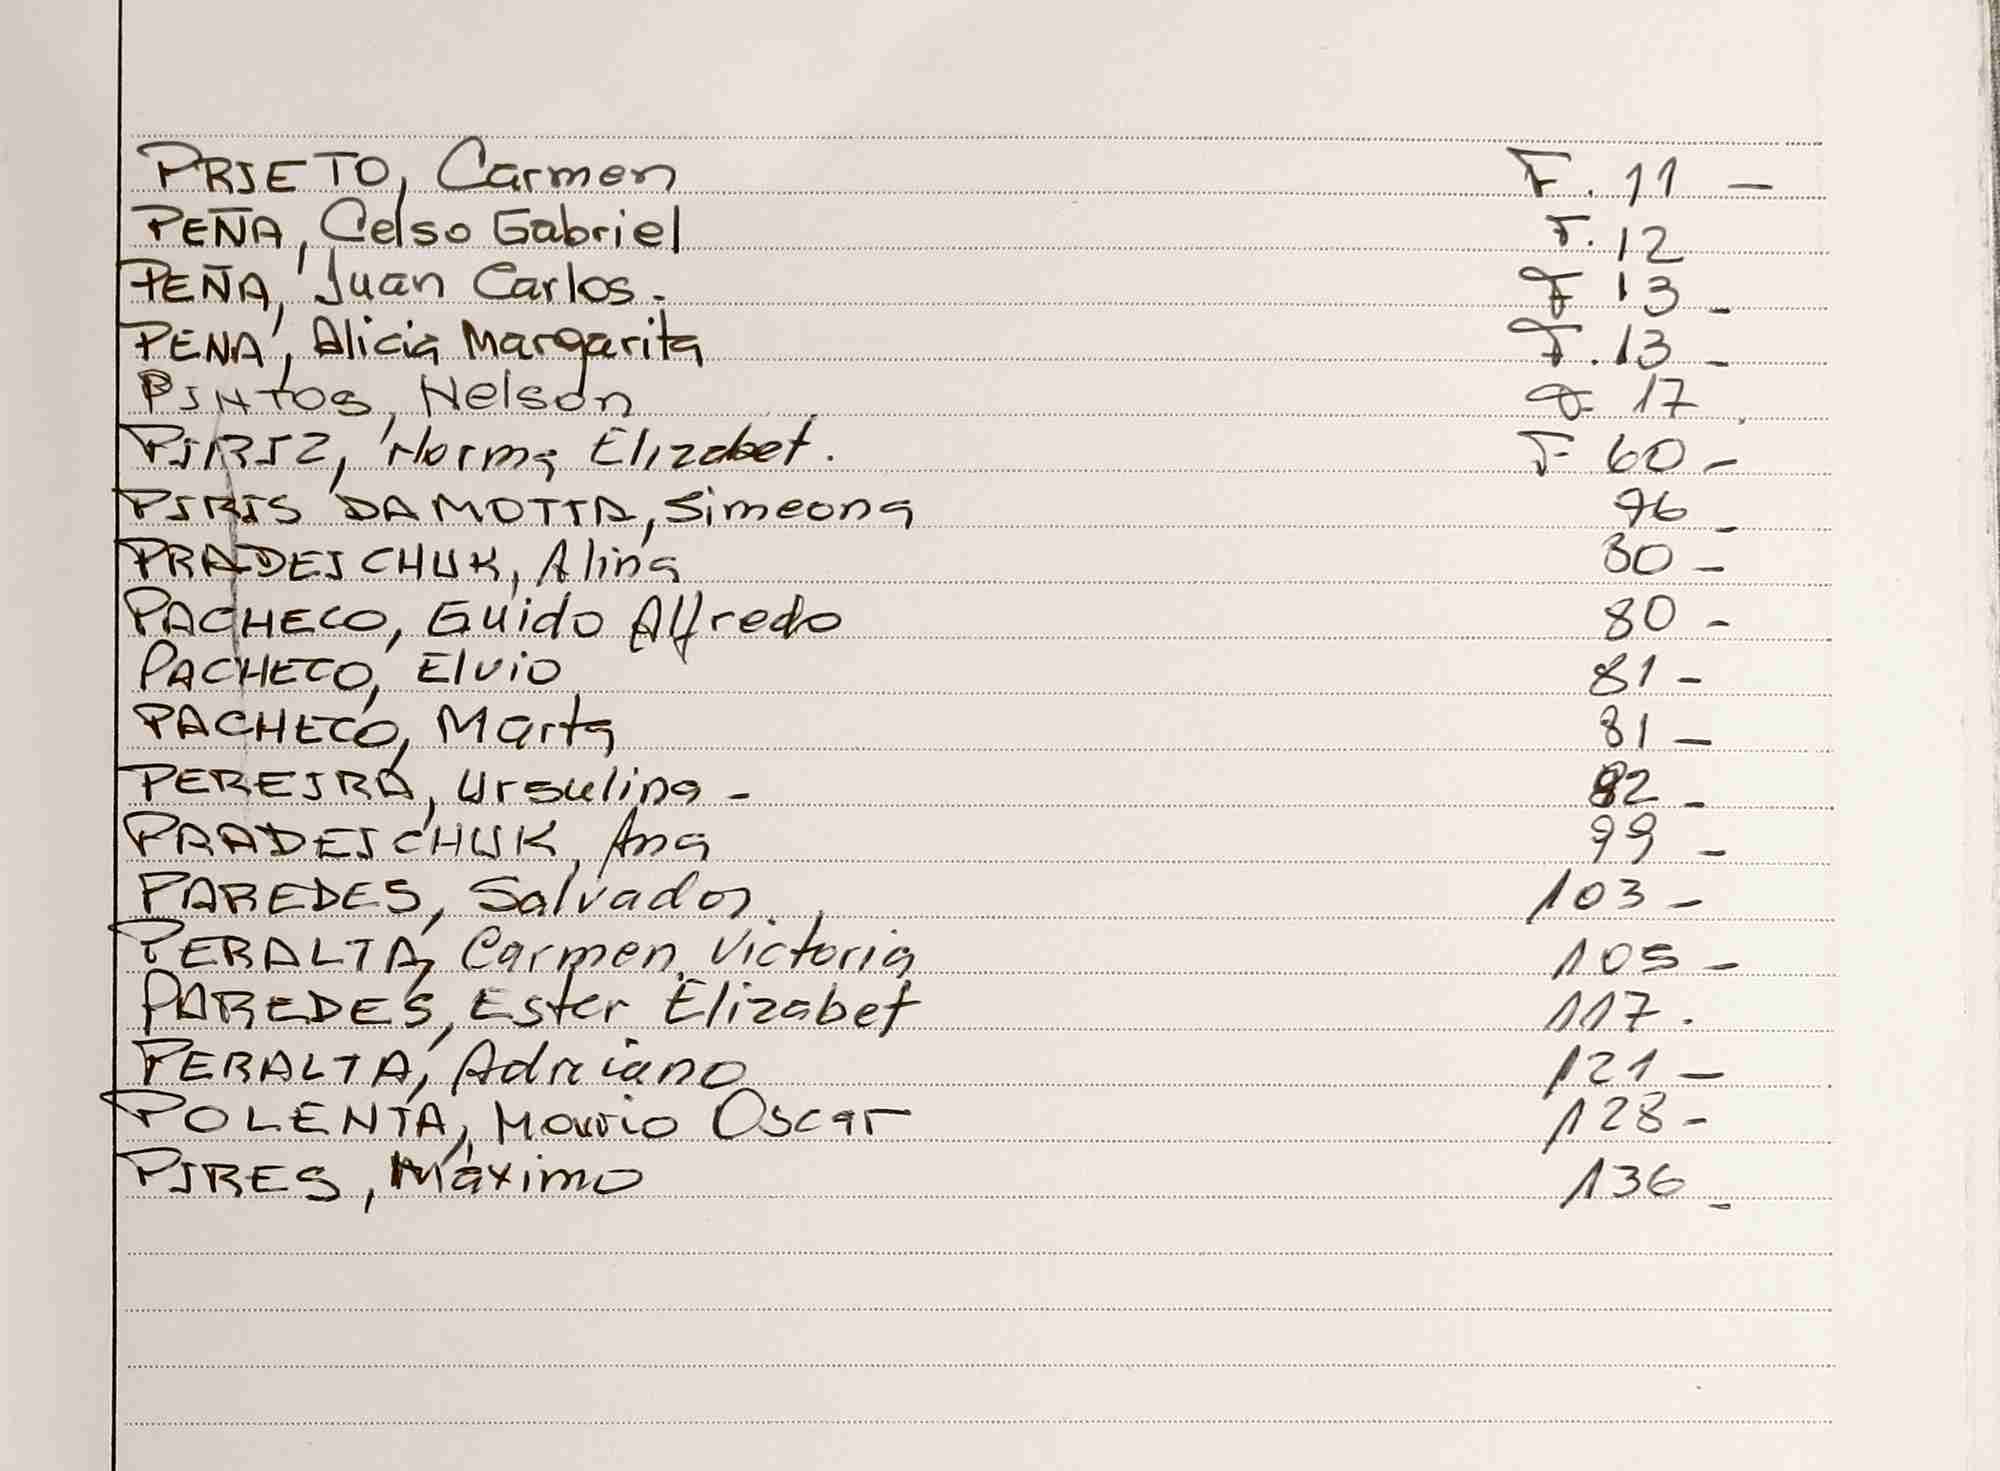 PRIETO, Carmen F. 11 —
PEÑA, Celso Gabriel F. 12
PEÑA, Juan Carlos. F 13 -
PEÑA, Alicia Margarita F. 13 -
PINTOS, Nelson F 17
PIRIZ, Norma Elizabet. F 60 -
PIRIS DA MOTTA, Simeona 76 -
PRADEICHUK, Alina 80 -
PACHECO, Guido Alfredo 80 -
PACHECO, Elvio 81 -
PACHECO, Marta 81 —
PEREIRA, Ursulina - 82 -
PRADEICHUK, Ana 99 -
PAREDES, Salvador. 103 -
PERALTA, Carmen Victoria 105 -
PAREDES, Ester Elizabet 117.
PERALTA, Adriano 121 —
POLENTA, Mario Oscar 128 -
PIRES, Máximo 136 -